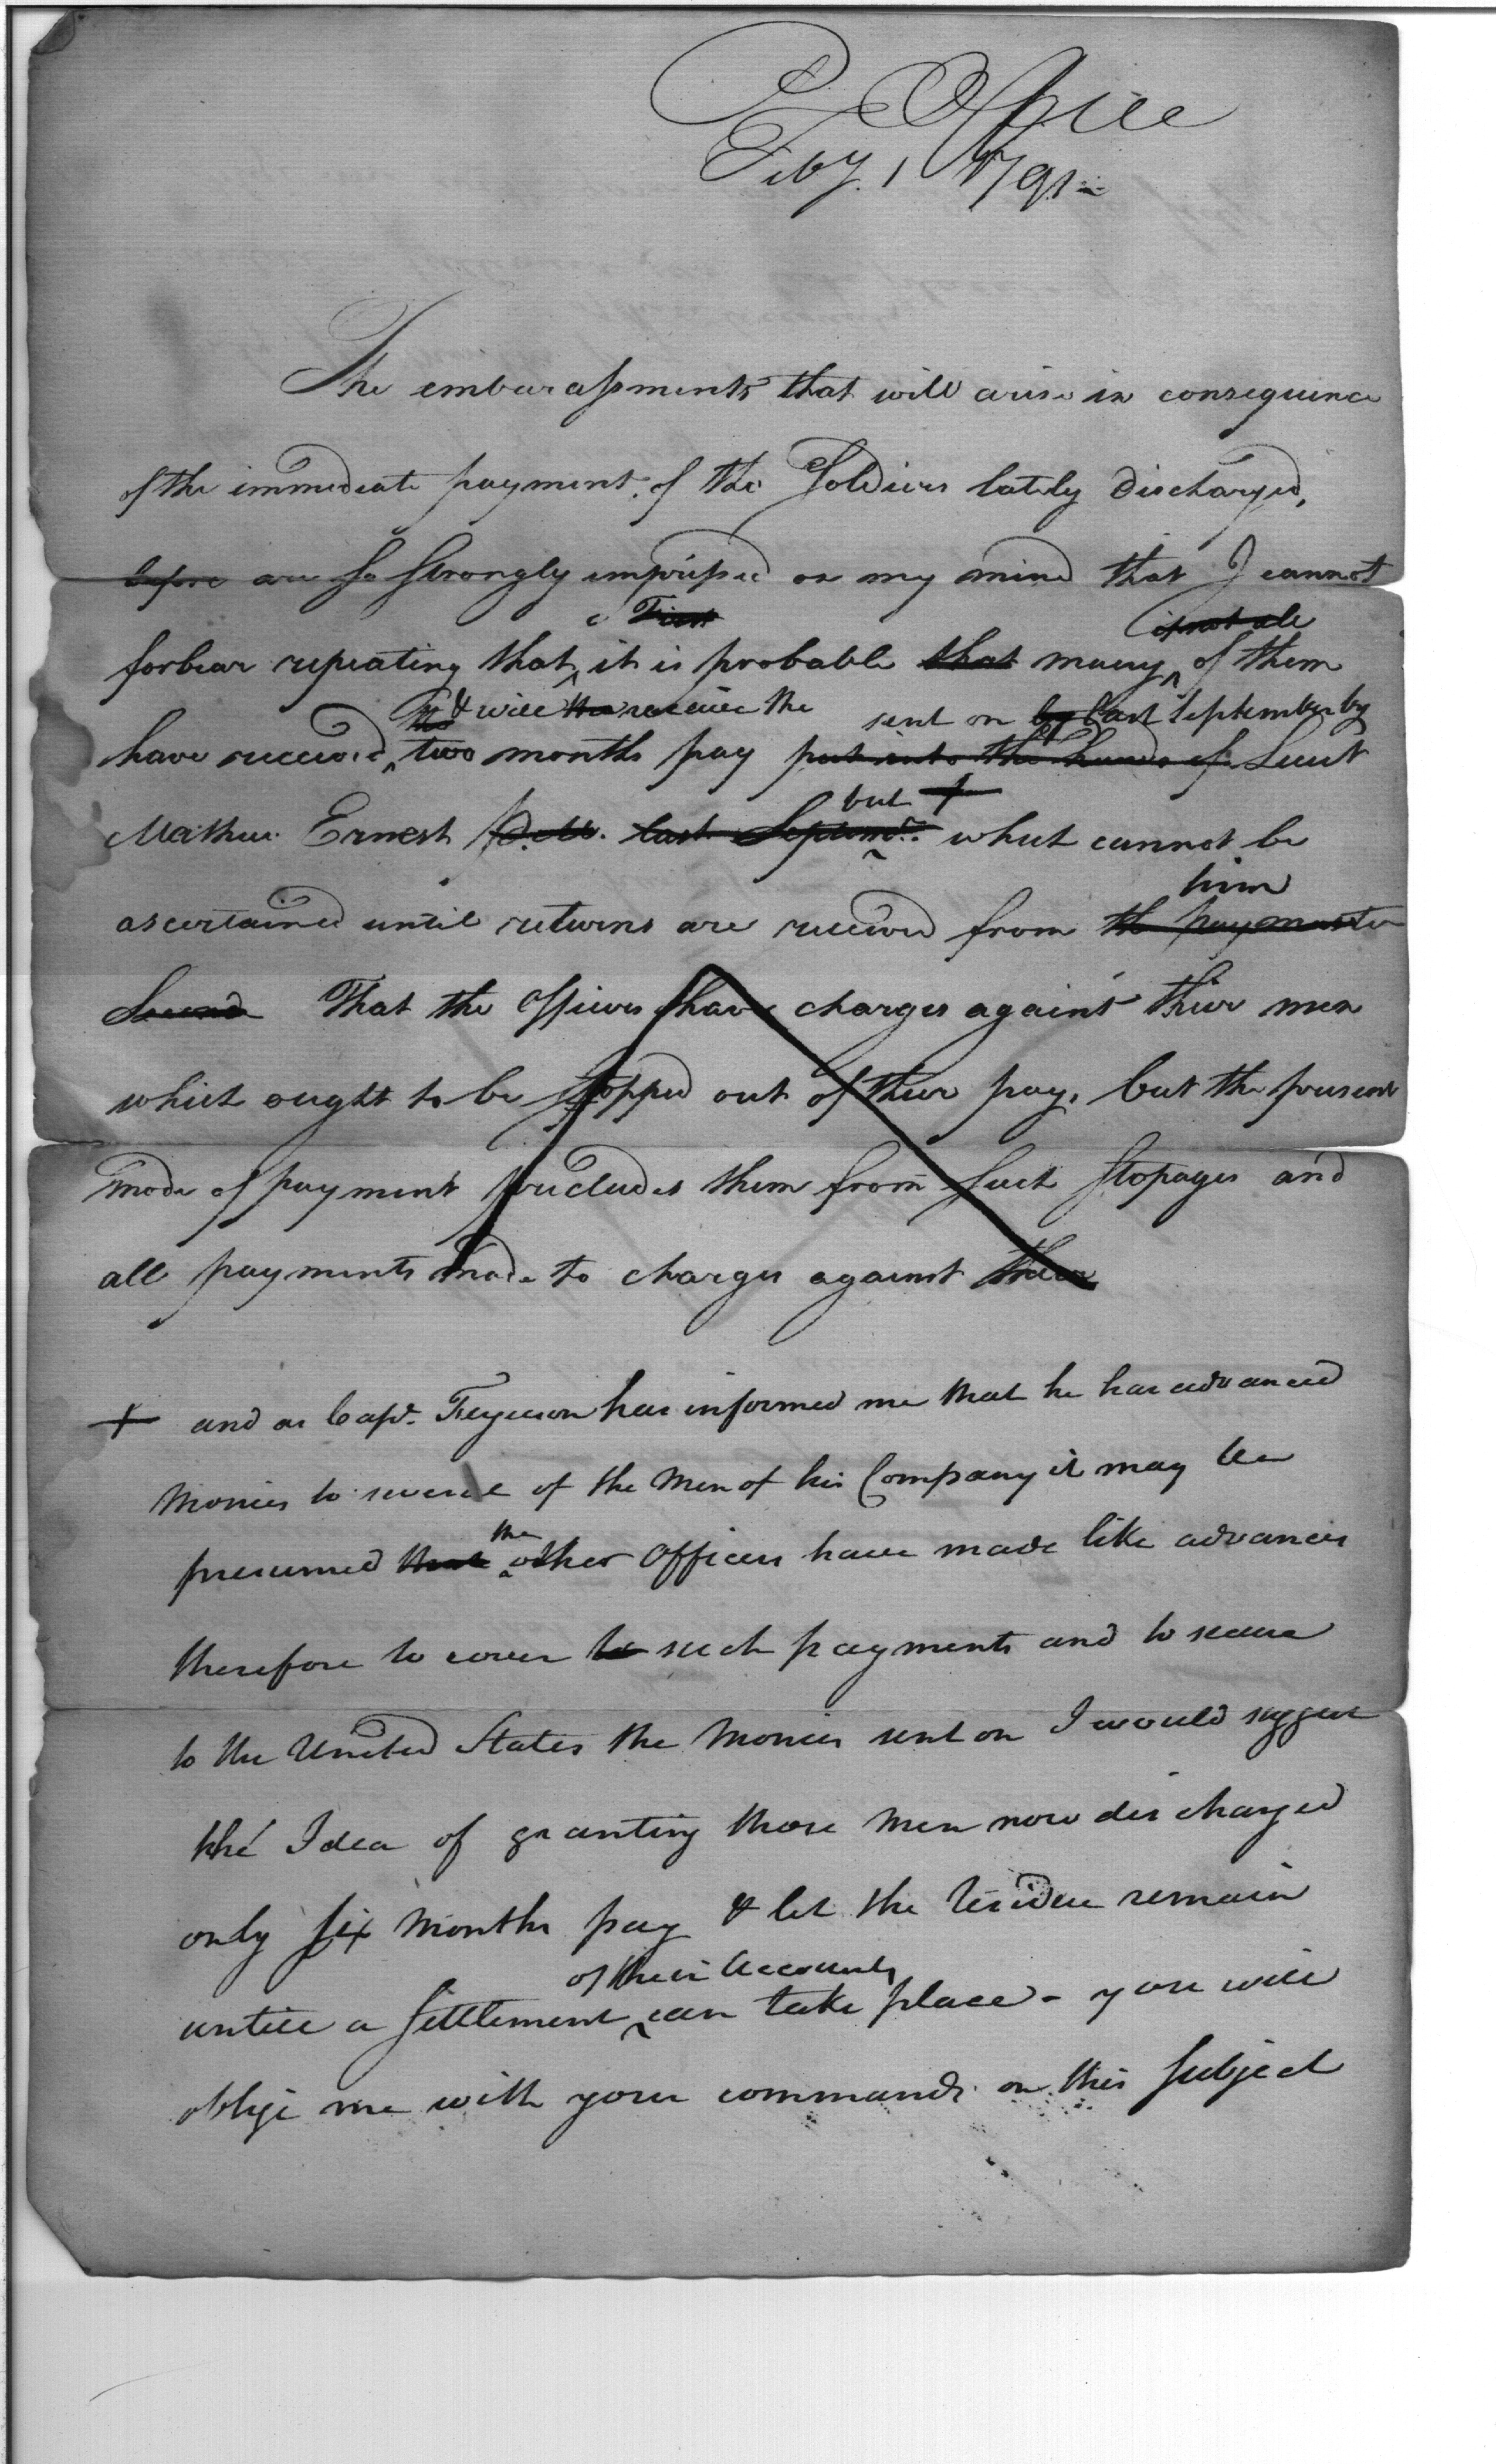 P Office
Feby. 1 1791
The embarassments that will arise in consequence
of the immediate payment of the Soldiers lately discharged,
before are so strongly impressed on my mind that I cannot
First if not all
forbear repeating that it is probable that many of them
the & will receive the sent on by last September by
have received two months pay put into the hands of Lieut
but +
Mathew Ernest last Septemr. which cannot be
him
ascertained until returns are received from the paymaster
Second That the Officers have charges against thier men
which ought to be stopped out of thier pay, but the present
mode of payment precludes them from such stopages and
all payments made to charges against them
+ and as Capt. Ferguson has informed me that he has advanced
Monies to several of the Men of his Company it may be
the
presumed that other Officers have made like advances
therefore to cover to such payments and to secure
to the United States the Monies sent on I would suggest
the Idea of granting those Men now discharged
only six Months pay & let the residue remain
of their Accounts
untill a settlement can take place - you will
oblige me with your commands on this subject